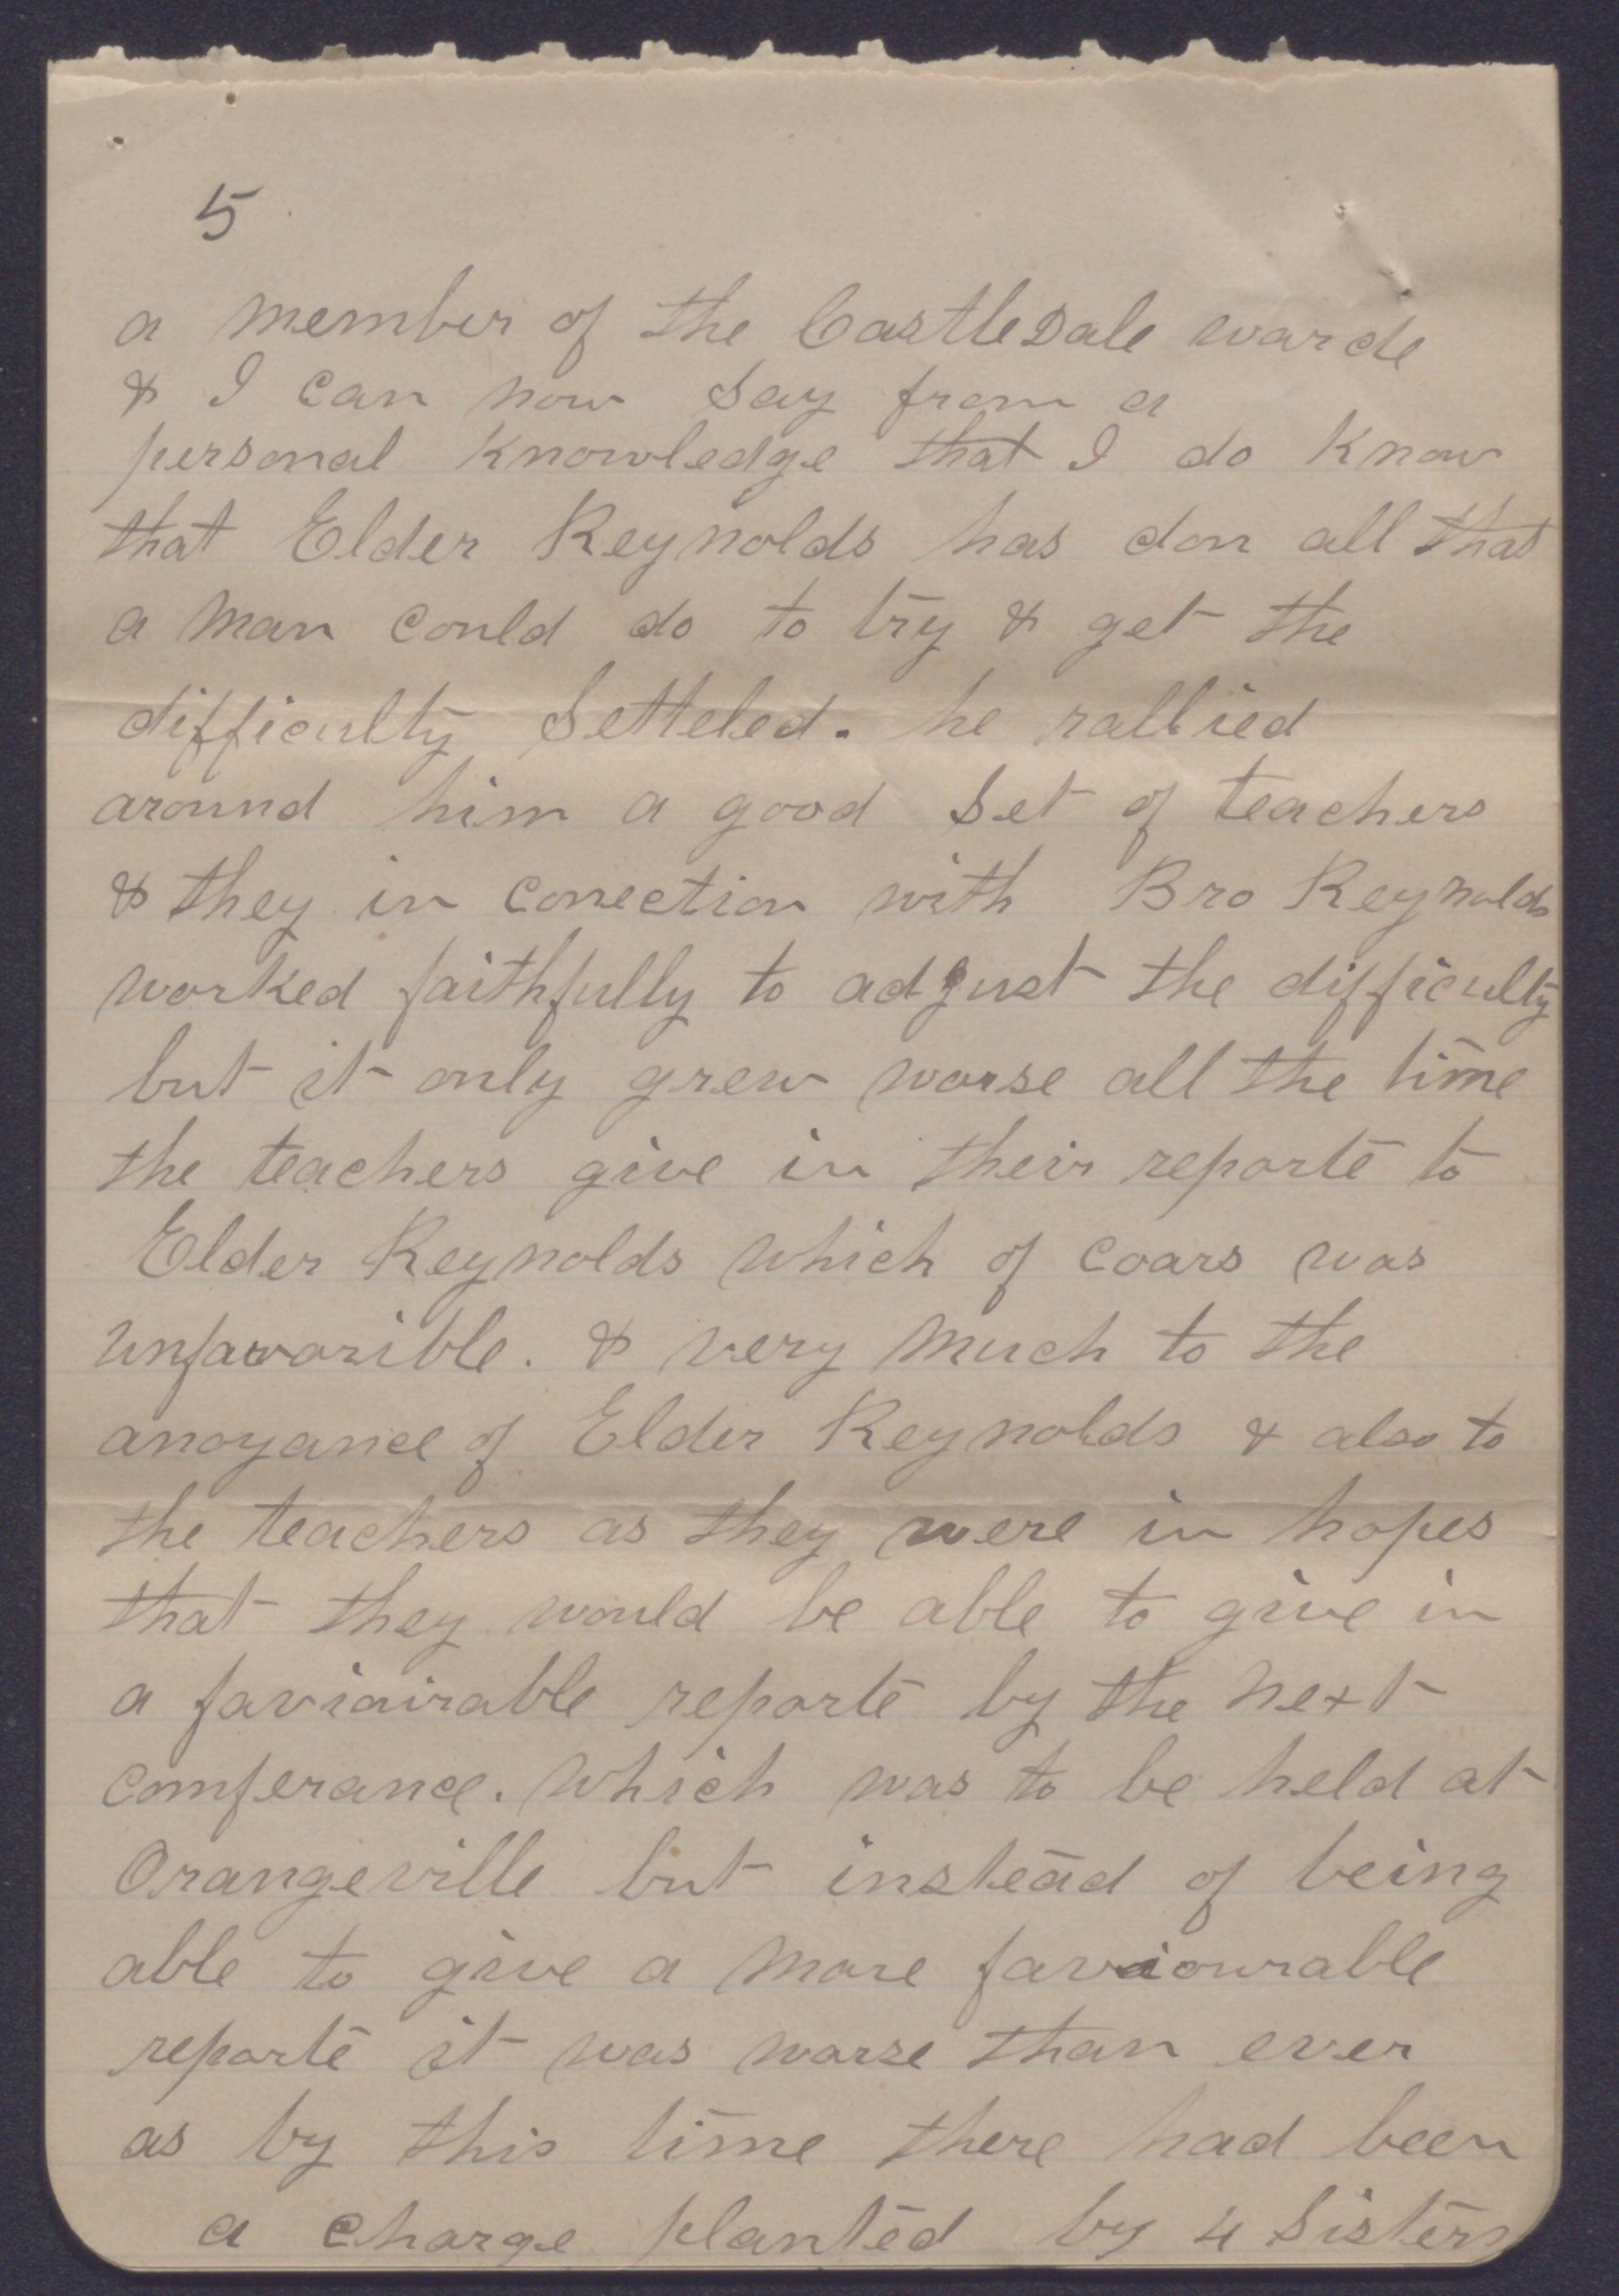 5
a member of the Castle Dale warde
& I can now say from a
personal knowledge that I do know
that Elder Reynolds has don all that
a man could do to try & get the
difficulty setteled. he rallied
around him a good set of teachers
& they in conection with Bro Reynolds
worked faithfully to adjust the difficulty
but it only grew worse all the time
the teachers give in their reporte to
Elder Reynolds which of coars was
unfavorible. & very much to the
anoyance of Elder Reynolds & also to
the teachers as they were in hopes
that they would be able to give in
a faviairable reporte by the next
comferance. which was to be held at
Orangeville but instead of being
able to give a more faviourable
reporte it was worse than ever
as by this time there had been
a charge planted by 4 sisters